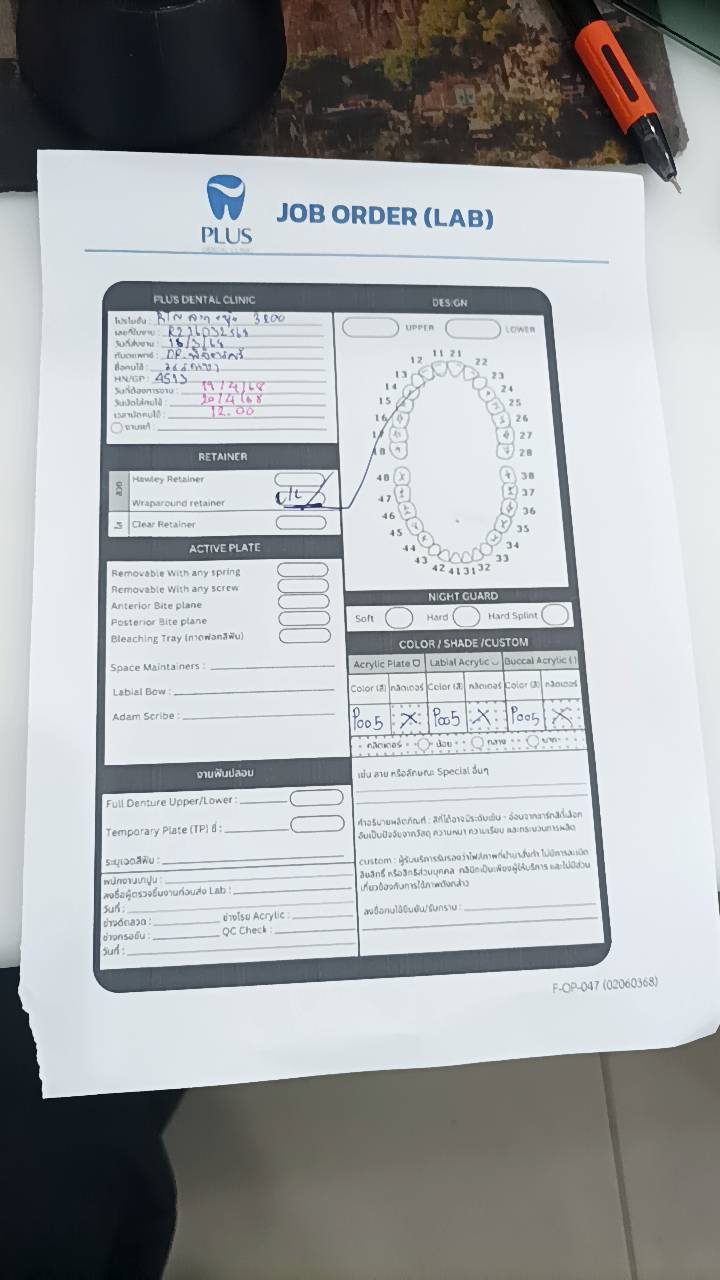 PLUS
DENTAL CLINIC
JOB ORDER (LAB)
PLUS DENTAL CLINIC
โปรโมชั่น : 3200
เลขที่ใบงาน :
วันที่ส่งงาน : 16/3/68
ทันตแพทย์ : DR.
ชื่อคนไข้ :
HN/GP : 4513
วันที่ต้องการงาน : 19/4/68
วันนัดใส่คนไข้ : 20/4/68
เวลานัดคนไข้ : 12.00
งานแก้ :
RETAINER
ลวด
Hawley Retainer
Wraparound retainer
ใส
Clear Retainer
ACTIVE PLATE
Removable With any spring
Removable With any screw
Anterior Bite plane
Posterior Bite plane
Bleaching Tray (ถาดฟอกสีฟัน)
Space Maintainers :
Labial Bow :
Adam Scribe :
งานฟันปลอม
Full Denture Upper/Lower :
Temporary Plate (TP) ซี่ :
ระบุเฉดสีฟัน :
พนักงานเคาน์เตอร์ :
ลงชื่อผู้ตรวจชิ้นงานก่อนส่ง Lab :
วันที่ :
ช่างดัดลวด : ช่างโรย Acrylic :
ช่างกรอขัด : QC Check :
วันที่ :
DESIGN
UPPER LOWER
11 21
12 22
13 23
14 24
15 25
16 26
17 27
18 28
48 38
47 37
46 36
45 35
44 34
43 33
42 41 31 32
NIGHT GUARD
Soft Hard Hard Splint
COLOR / SHADE /CUSTOM
Acrylic Plate Labial Acrylic Buccal Acrylic ( )
Color (สี) กลิตเตอร์ Color (สี) กลิตเตอร์ Color (สี) กลิตเตอร์
P005 X P005 X P005 X
กลิตเตอร์ น้อย กลาง มาก
เช่น ลาย หรือลักษณะ Special อื่นๆ
คำอธิบายผลิตภัณฑ์ : สีที่ได้อาจมีระดับเข้ม - อ่อนจากชาร์ทสีที่เลือก
อันเป็นปัจจัยจากวัสดุ ความหนา ความเรียบ และกระบวนการผลิต
custom : ผู้รับบริการรับรองว่าไฟล์ภาพที่นำมาสั่งทำ ไม่มีการละเมิด
ลิขสิทธิ์ หรือสิทธิส่วนบุคคล คลินิกเป็นเพียงผู้ให้บริการ และไม่มีส่วน
เกี่ยวข้องกับการใช้ภาพดังกล่าว
ลงชื่อคนไข้ยืนยัน/รับทราบ :
F-OP-047 (02060368)